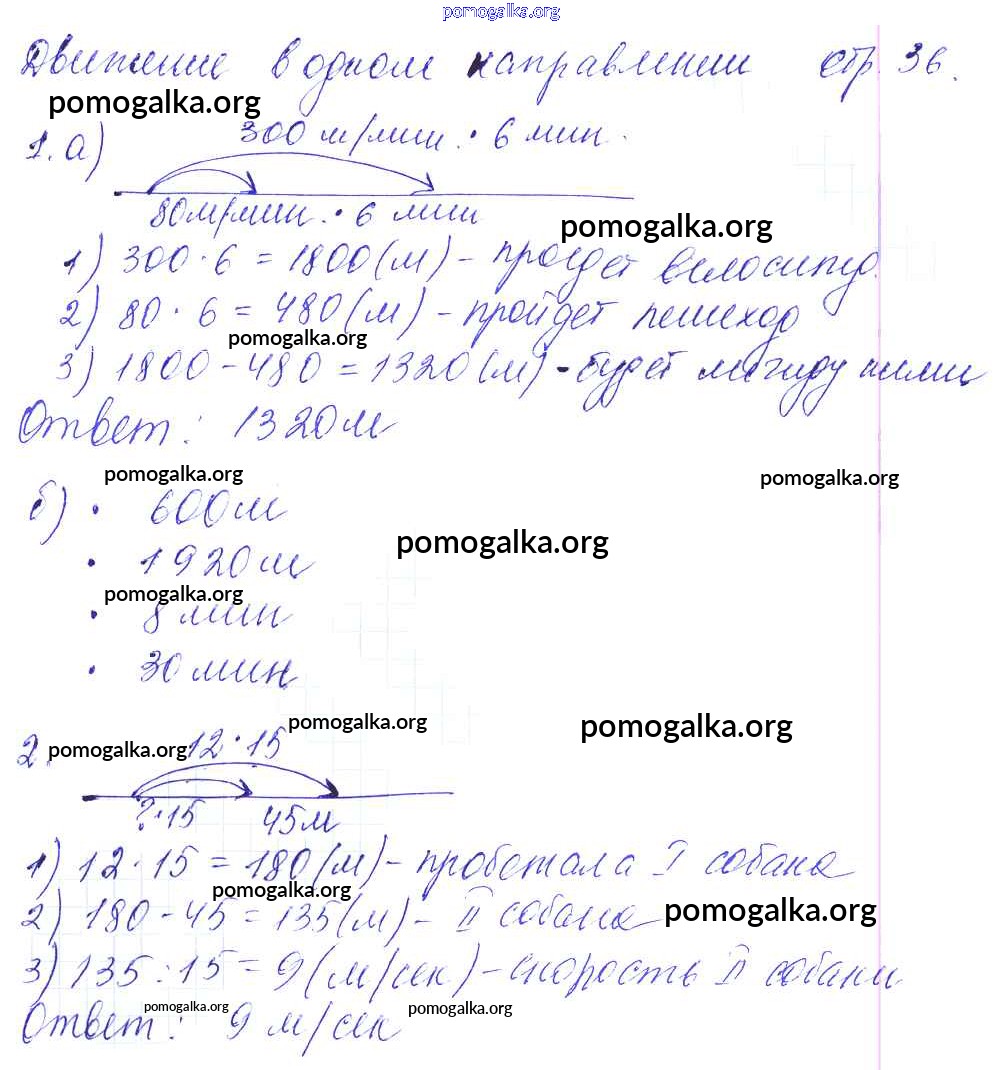 pomogalka.org
Движение в одном направлении стр. 36.
pomogalka.org
1. а) 300 м/мин. · 6 мин.
80 м/мин. · 6 мин
pomogalka.org
1) 300 · 6 = 1800 (м) - проедет велосипед.
2) 80 · 6 = 480 (м) - пройдет пешеход
pomogalka.org
3) 1800 - 480 = 1320 (м) - будет между ними
Ответ: 1320 м
pomogalka.org pomogalka.org
б) · 600 м
pomogalka.org
· 1920 м
pomogalka.org
· 8 мин
· 30 мин
pomogalka.org pomogalka.org
2. pomogalka.org 12 · 15
? · 15 45 м
1) 12 · 15 = 180 (м) - пробежала I собака
pomogalka.org
2) 180 - 45 = 135 (м) - II собака pomogalka.org
3) 135 : 15 = 9 (м/сек) - скорость II собаки
pomogalka.org pomogalka.org
Ответ: 9 м/сек